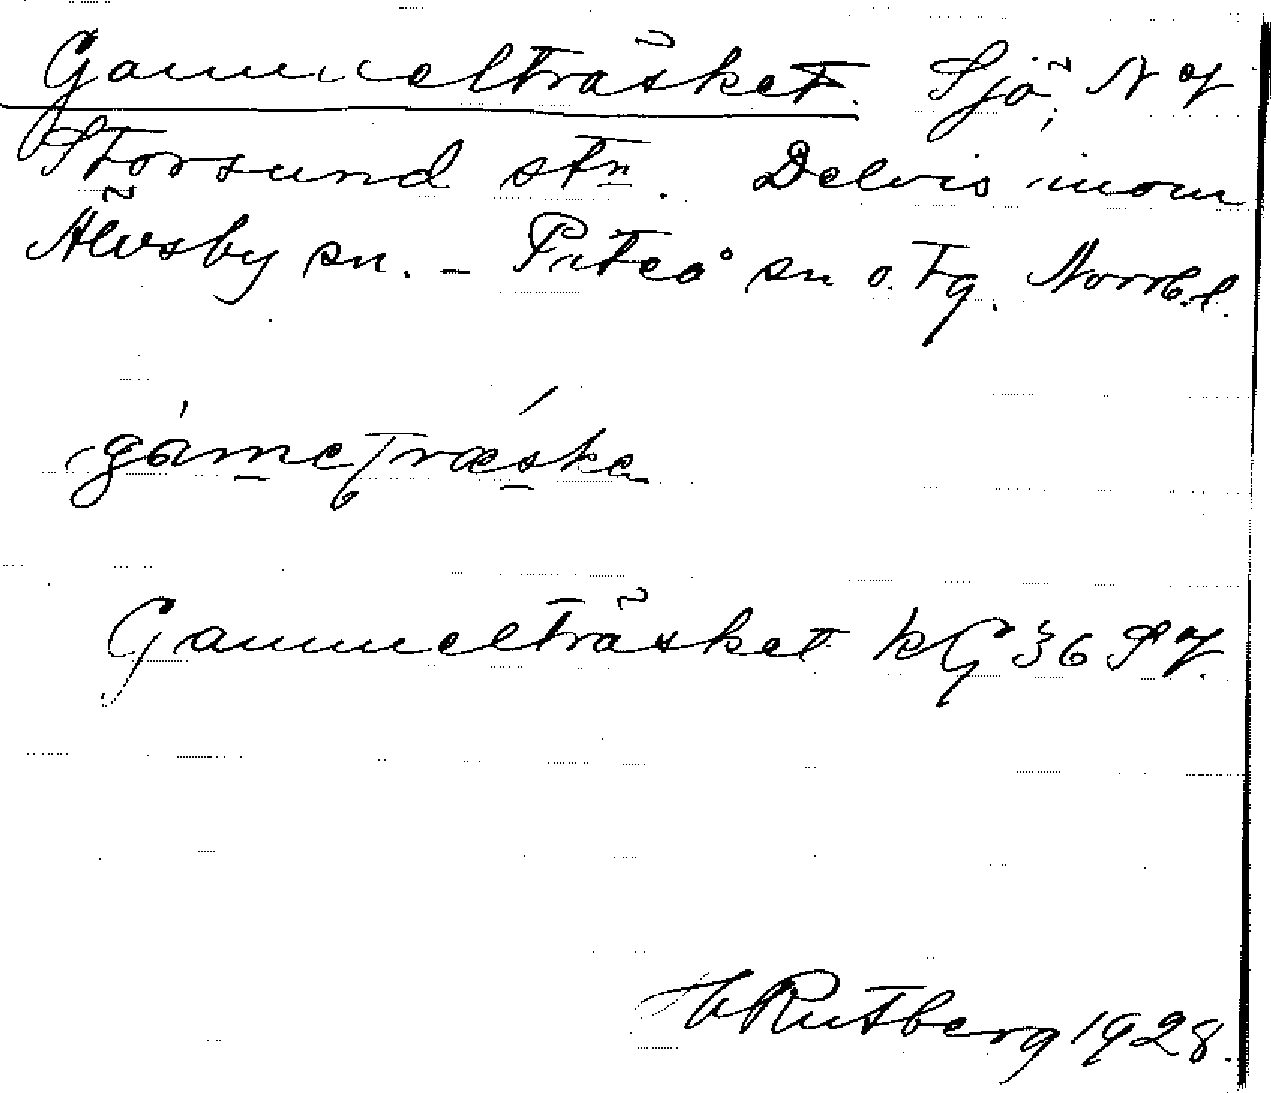 Gammelträsket. Sjö, N of
Storsund stn. Delvis inom
Älvsby sn. - Piteå sn o. tg. Norrb.l.
gámetræ̀ske
Gammelträsket kG 36 Sf.
H Rutberg 1928.